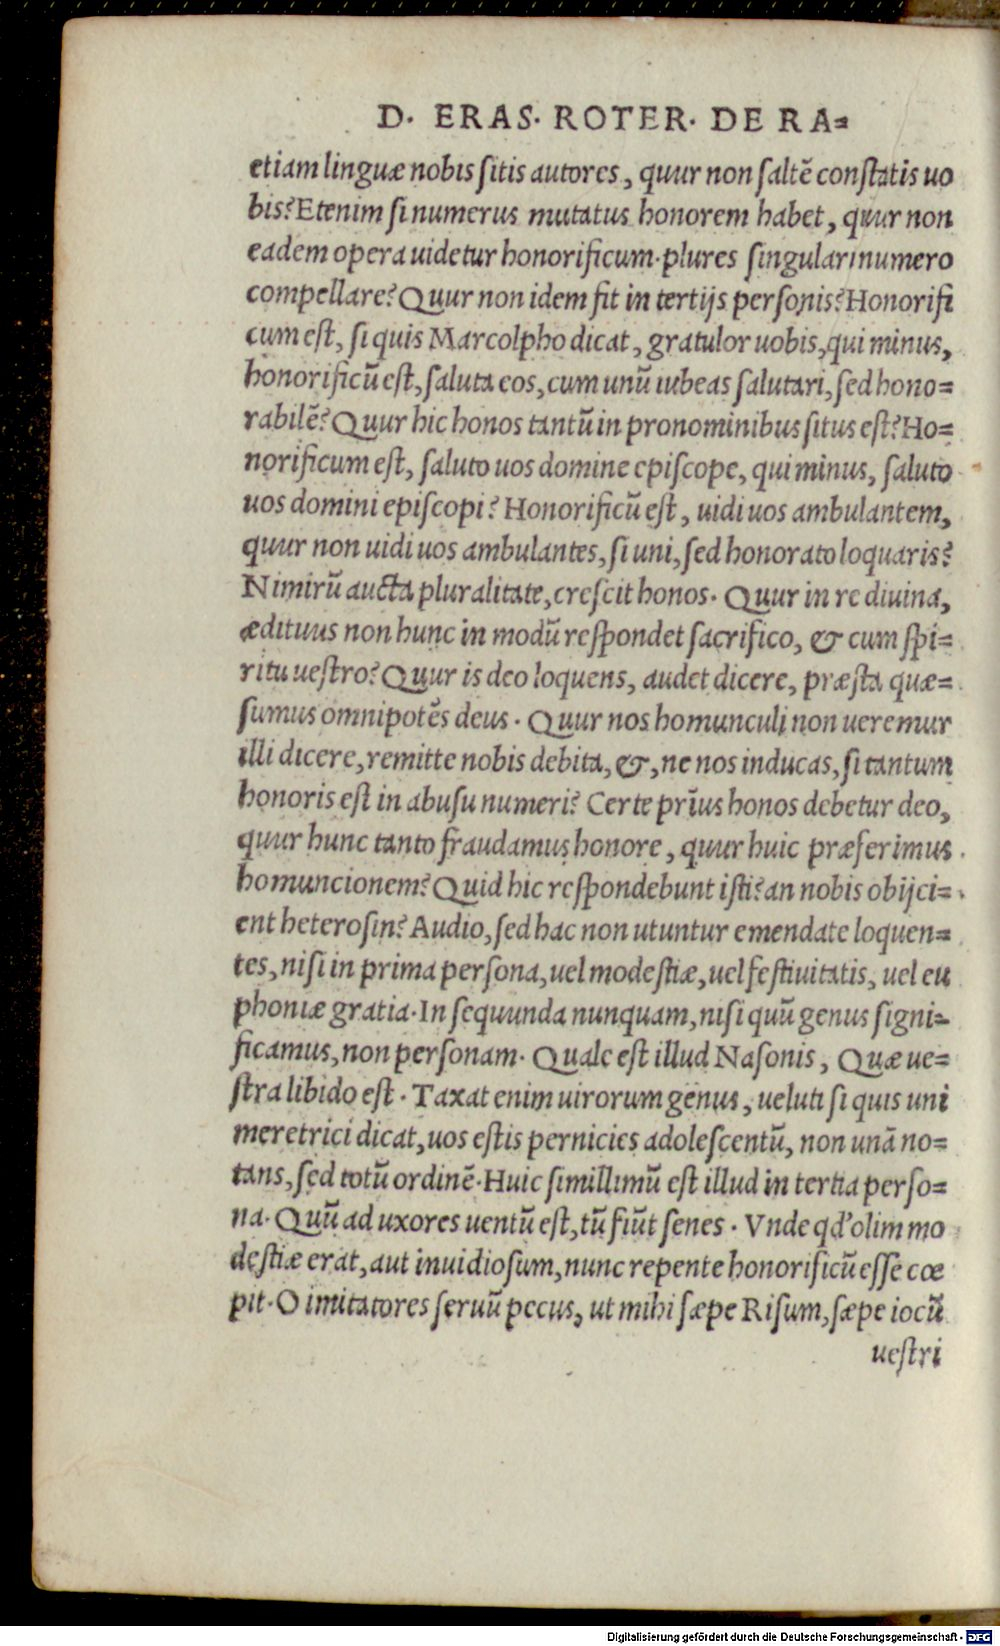 D. ERAS. ROTER. DE RA=
etiam linguæ nobis ſitis autores, quur non ſaltẽ conſtatis uo
bis? Etenim ſi numerus mutatus honorem habet, quur non
eadem opera uidetur honorificum. plures ſingulari numero
compellare? Quur non idem fit in tertijs perſonis? Honorifi
cum eſt, ſi quis Marcolpho dicat, gratulor uobis, qui minus,
honorificũ eſt, ſaluta eos, cum unũ iubeas ſalutari, ſed hono=
rabilẽ? Quur hic honos tantũ in pronominibus ſitus eſt? Ho=
norificum eſt, ſaluto uos domine epiſcope, qui minus, ſaluto
uos domini epiſcopi? Honorificũ eſt, uidi uos ambulantem,
quur non uidi uos ambulantes, ſi uni, ſed honorato loquaris?
Nimirũ aucta pluralitate, creſcit honos. Quur in re diuina,
ædituus non hunc in modũ reſpondet ſacrifico, & cum ſpi=
ritu ueſtro? Quur is deo loquens, audet dicere, præſta quæ=
ſumus omnipotẽs deus. Quur nos homunculi non ueremur
illi dicere, remitte nobis debita, &, ne nos inducas, ſi tantum
honoris eſt in abuſu numeri? Certe prĩus honos debetur deo,
quur hunc tanto fraudamus honore, quur huic præferimus
homuncionem? Quid hic reſpondebunt iſti? an nobis obijci=
ent heteroſin? Audio, ſed hac non utuntur emendate loquen=
tes, niſi in prima perſona, uel modeſtiæ, uel feſtiuitatis, uel eu
phoniæ gratia. In ſequunda nunquam, niſi quũ genus ſigni=
ficamus, non perſonam. Quale eſt illud Naſonis, Quæ ue=
ſtra libido eſt. Taxat enim uirorum genus, ueluti ſi quis uni
meretrici dicat, uos eſtis pernicies adoleſcentũ, non unã no=
tans, ſed totũ ordinẽ. Huic ſimillimũ eſt illud in tertia perſo=
na. Quũ ad uxores uentũ eſt, tũ fiũt ſenes. Vnde qď olim mo
deſtiæ erat, aut inuidioſum, nunc repente honorificũ eſſe cœ
pit. O imitatores ſeruũ pecus, ut mihi ſæpe Riſum, ſæpe iocũ
ueſtri
Digitalisierung gefördert durch die Deutsche Forschungsgemeinschaft - DFG